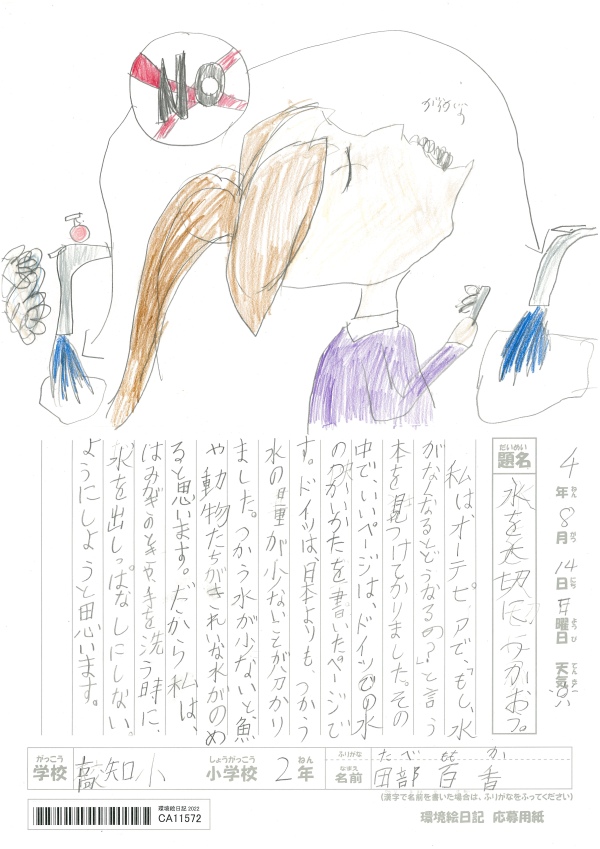 NO
がらがら
4年8月14日日曜日 天気
ねん がつ にち ようび てんき
だいめい
題名 水を大切につかおう。
私はオーテピアで、「もし、水
がなくなるとどうなるの?」と言う
本を見つけてかりました。その
中で、いいページは、ドイツでの水
のつかいかたを書いたページで
す。ドイツは、日本よりも、つかう
水の量が少ないことが分かり
ました。つかう水が少ないと魚
や動物たちがきれいな水がのめ
ると思います。だから私は、
はみがきのときや、手を洗う時に、
水を出しっぱなしにしない
ようにしようと思います。
がっこう しょうがっこう ねん
学校 高知小 小学校 2年
ふりがな たべ ももか
なまえ
名前 田部 百香
(漢字で名前を書いた場合は、ふりがなをふってください)
環境絵日記 2022
CA11572
環境絵日記 応募用紙